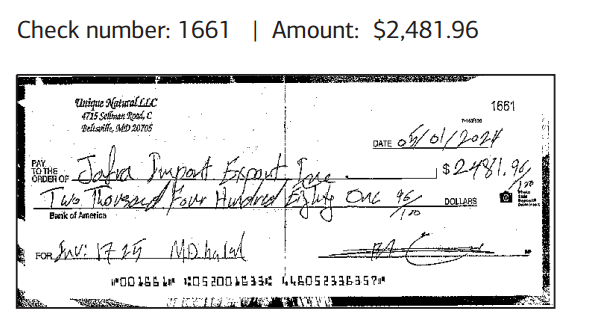 Check number: 1661 | Amount: $2,481.96
Unique Natural LLC
4715 Sellman Road, C
Beltsville, MD 20705
1661
DATE 05/01/2024
PAY TO THE ORDER OF Jafra Import Export Inc.
$2481.96/100
Two Thousand Four Hundred Eighty One 96/100 DOLLARS
Bank of America
FOR Inv: 1725 MD halal
⑈001661⑈ ⑆052001633⑆ 446052336357⑈